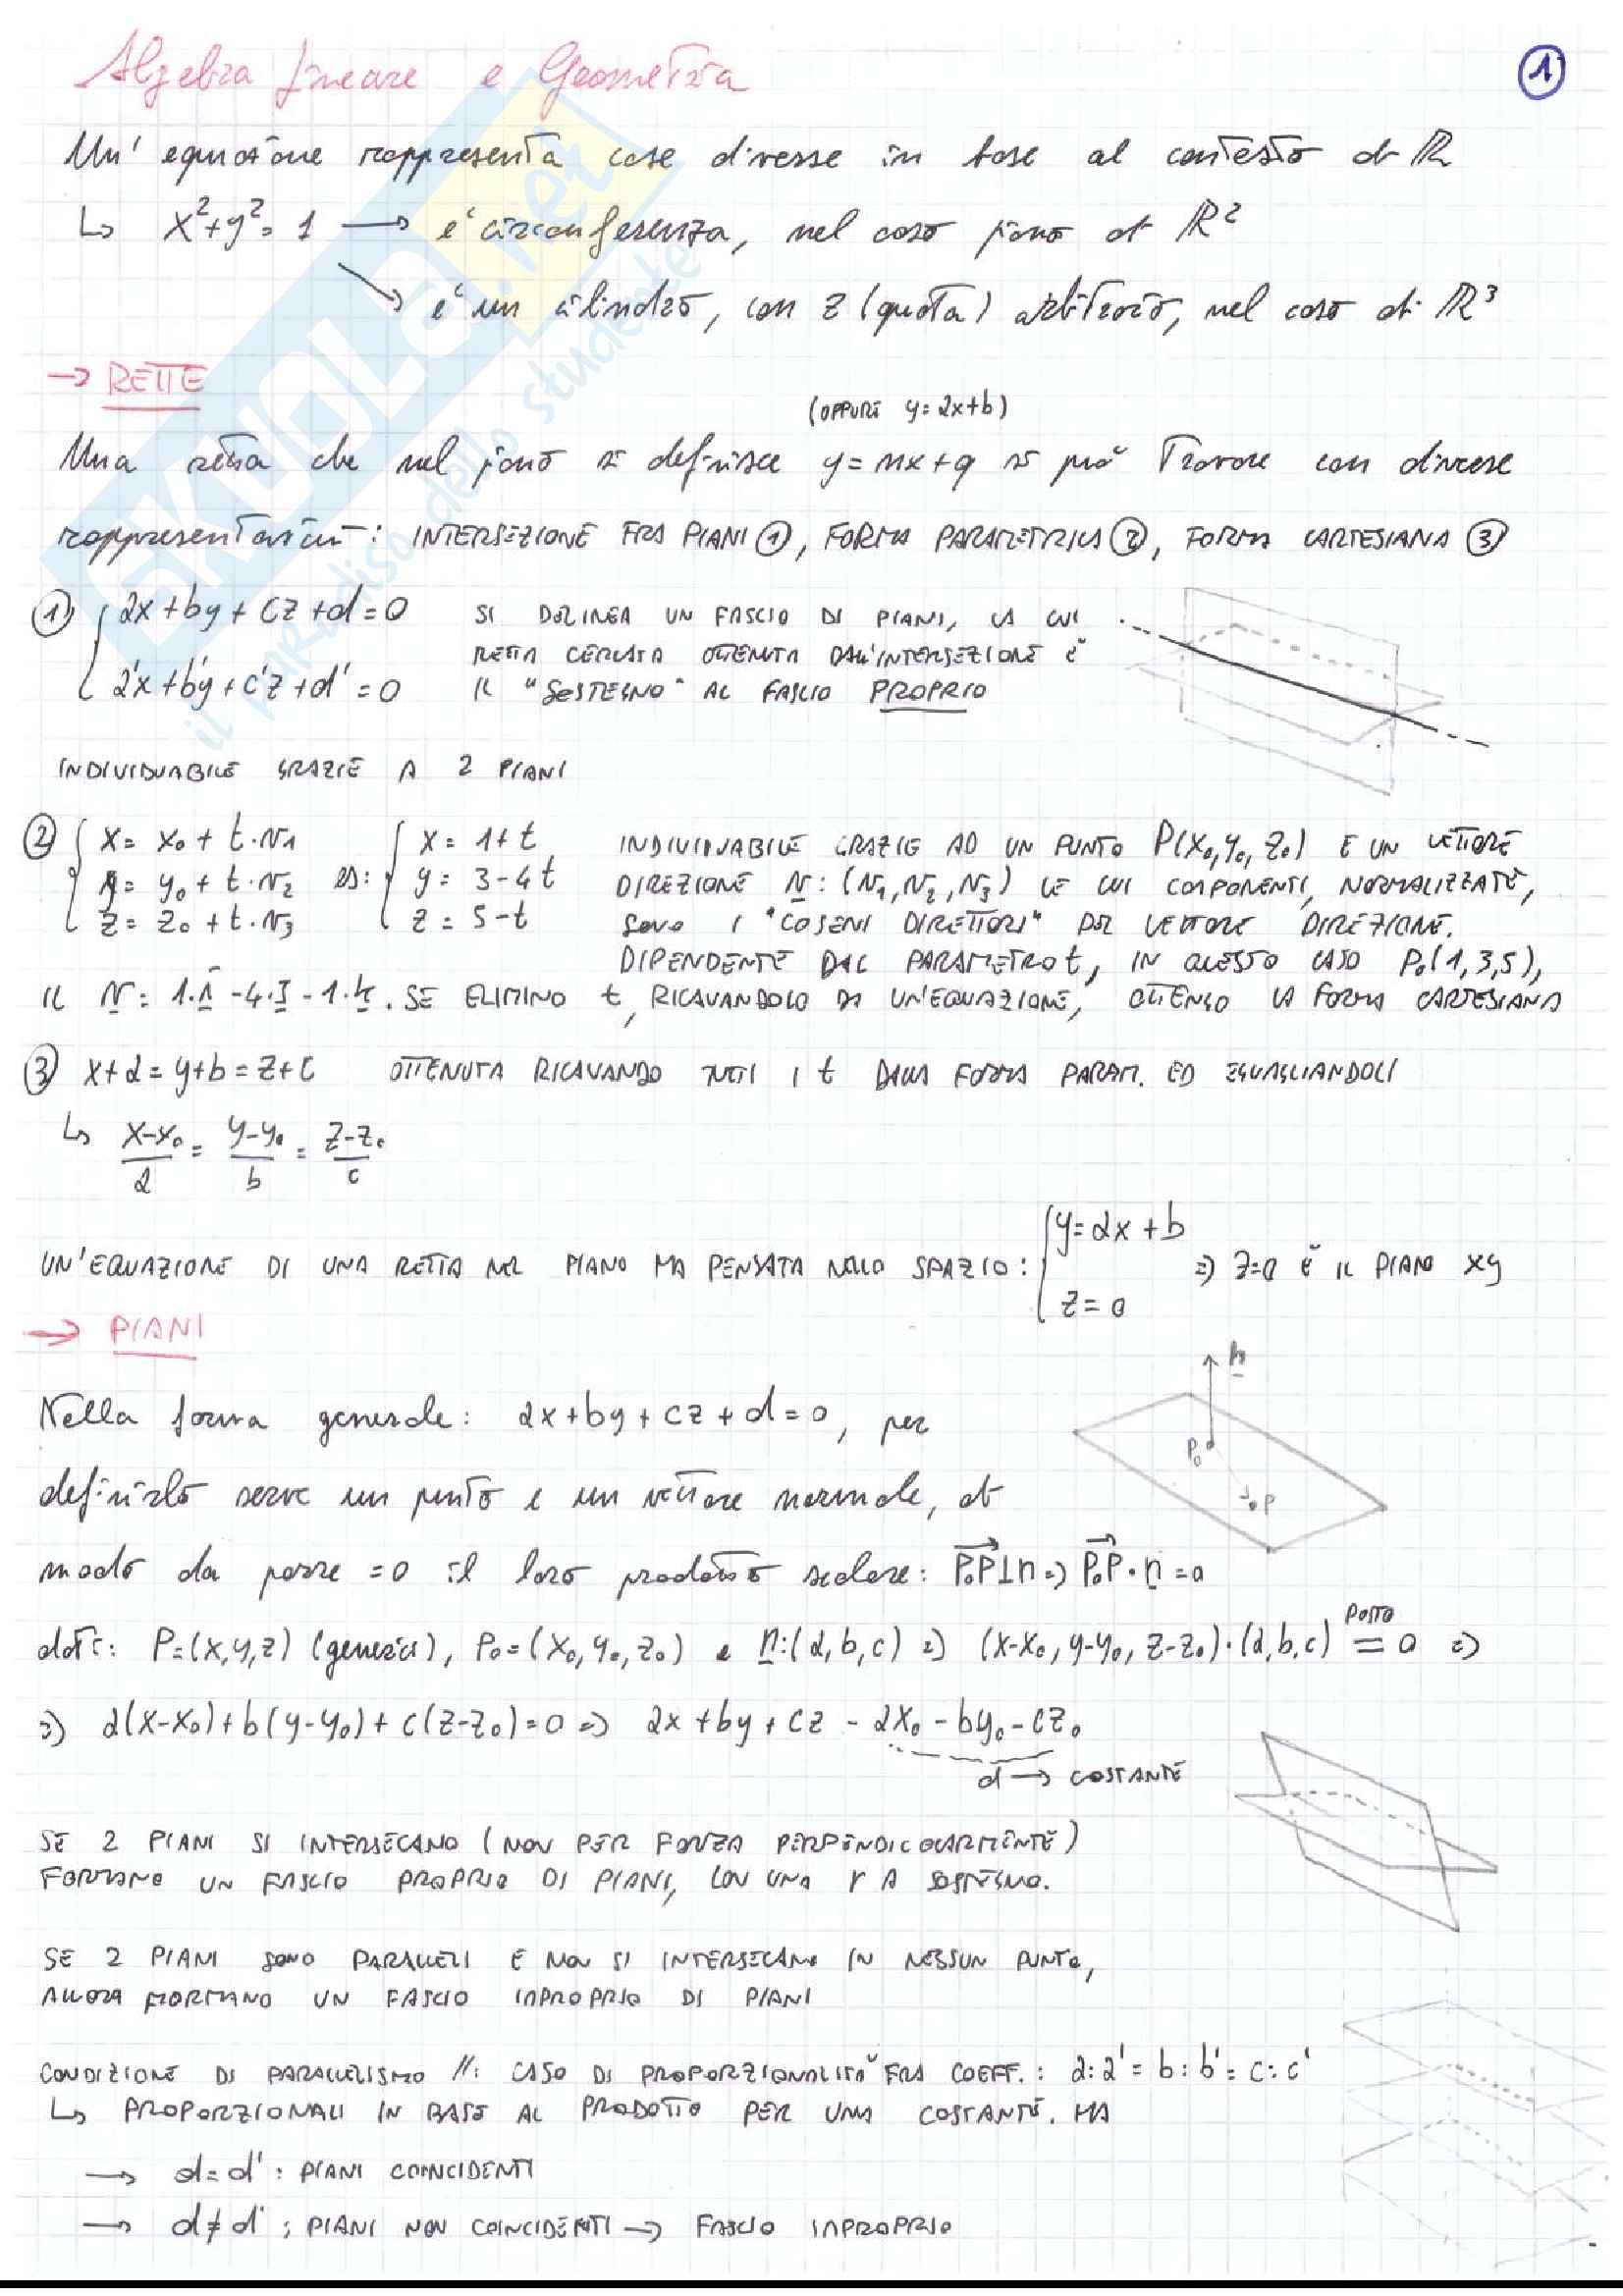 Algebra Lineare e Geometria
1
Un' equazione rappresenta cose diverse in base al contesto di ℝ
↳ x²+y²=1 → e' circonferenza, nel caso piano di ℝ²
↘ e' un cilindro, con z (quota) arbitrario, nel caso di ℝ³
→ RETTE
(OPPURE y=ax+b)
Una retta che nel piano si definisce y=mx+q si può trovare con diverse
rappresentazioni: INTERSEZIONE FRA PIANI ①, FORMA PARAMETRICA ②, FORMA CARTESIANA ③
① { ax+by+cz+d=0
a'x+b'y+c'z+d'=0
SI DELINEA UN FASCIO DI PIANI, LA CUI
RETTA CERCATA OTTENUTA DALL'INTERSEZIONE È
IL "SOSTEGNO" AL FASCIO PROPRIO
INDIVIDUABILE GRAZIE A 2 PIANI
② { x= x₀+t·v₁
y= y₀+t·v₂
z= z₀+t·v₃
es: { x= 1+t
y= 3-4t
z= 5-t
INDIVIDUABILE GRAZIE AD UN PUNTO P(x₀,y₀,z₀) E UN VETTORE
DIREZIONE v: (v₁,v₂,v₃) LE CUI COMPONENTI, NORMALIZZATE,
SONO I "COSENI DIRETTORI" DEL VETTORE DIREZIONE.
DIPENDENTE DAL PARAMETRO t, IN QUESTO CASO P₀(1,3,5),
IL v= 1·i -4·j -1·k. SE ELIMINO t, RICAVANDOLO DA UN'EQUAZIONE, OTTENGO LA FORMA CARTESIANA
③ x+a=y+b=z+c OTTENUTA RICAVANDO TUTTI I t DALLA FORMA PARAM. ED EGUAGLIANDOLI
↳ (x-x₀)/a = (y-y₀)/b = (z-z₀)/c
UN'EQUAZIONE DI UNA RETTA NEL PIANO MA PENSATA NELLO SPAZIO: { y=ax+b
z=0
⇒ z=0 È IL PIANO xy
→ PIANI
n
P₀
P
Nella forma generale: ax+by+cz+d=0, per
definirlo serve un punto e un vettore normale, di
modo da porre =0 il loro prodotto scalare: P₀P⊥n ⇒ P₀P·n=0
dati: P=(x,y,z) (generici), P₀=(x₀,y₀,z₀) e n:(a,b,c) ⇒ (x-x₀,y-y₀,z-z₀)·(a,b,c) = 0 ⇒
POSTO
⇒ a(x-x₀)+b(y-y₀)+c(z-z₀)=0 ⇒ ax+by+cz -ax₀-by₀-cz₀
d → COSTANTE
SE 2 PIANI SI INTERSECANO (NON PER FORZA PERPENDICOLARMENTE)
FORMANO UN FASCIO PROPRIO DI PIANI, CON UNA r A SOSTEGNO.
SE 2 PIANI SONO PARALLELI E NON SI INTERSECANO IN NESSUN PUNTO,
ALLORA FORMANO UN FASCIO IMPROPRIO DI PIANI
CONDIZIONE DI PARALLELISMO //: CASO DI PROPORZIONALITÀ FRA COEFF.: a:a'=b:b'=c:c'
↳ PROPORZIONALI IN BASE AL PRODOTTO PER UNA COSTANTE. MA
→ d=d': PIANI COINCIDENTI
→ d≠d': PIANI NON COINCIDENTI → FASCIO IMPROPRIO
SKUOLA.net
il paradiso dello studente